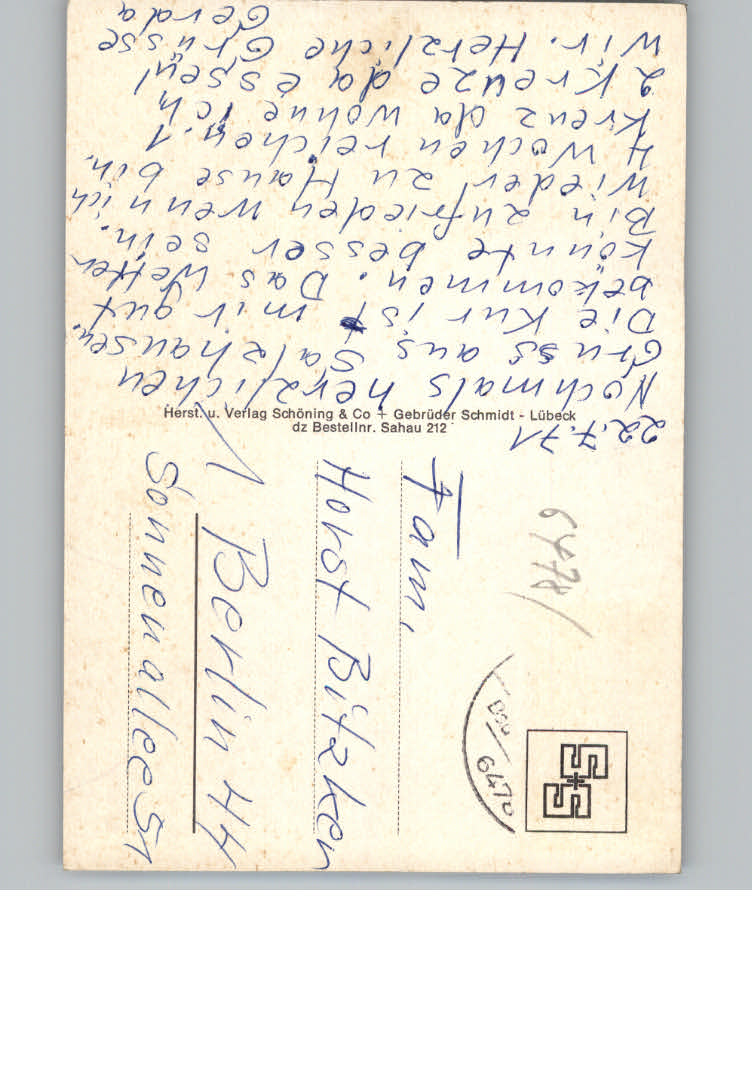 22.7.71
Nochmals herzlichen
Gruss aus Salzhausen.
Die Kur ist mir gut
bekommen. Das Wetter
könnte besser sein.
Bin zufrieden wenn ich
wieder zu Hause bin.
4 Wochen reichen. 1
Kreuz da wohne ich
2 Kreuze da essen
wir. Herzliche Grüsse
Gerda
Herst. u. Verlag Schöning & Co + Gebrüder Schmidt - Lübeck
dz Bestellnr. Sahau 212
6478/
6470
Fam.
Horst
1 Berlin 44
Sonnenallee 51